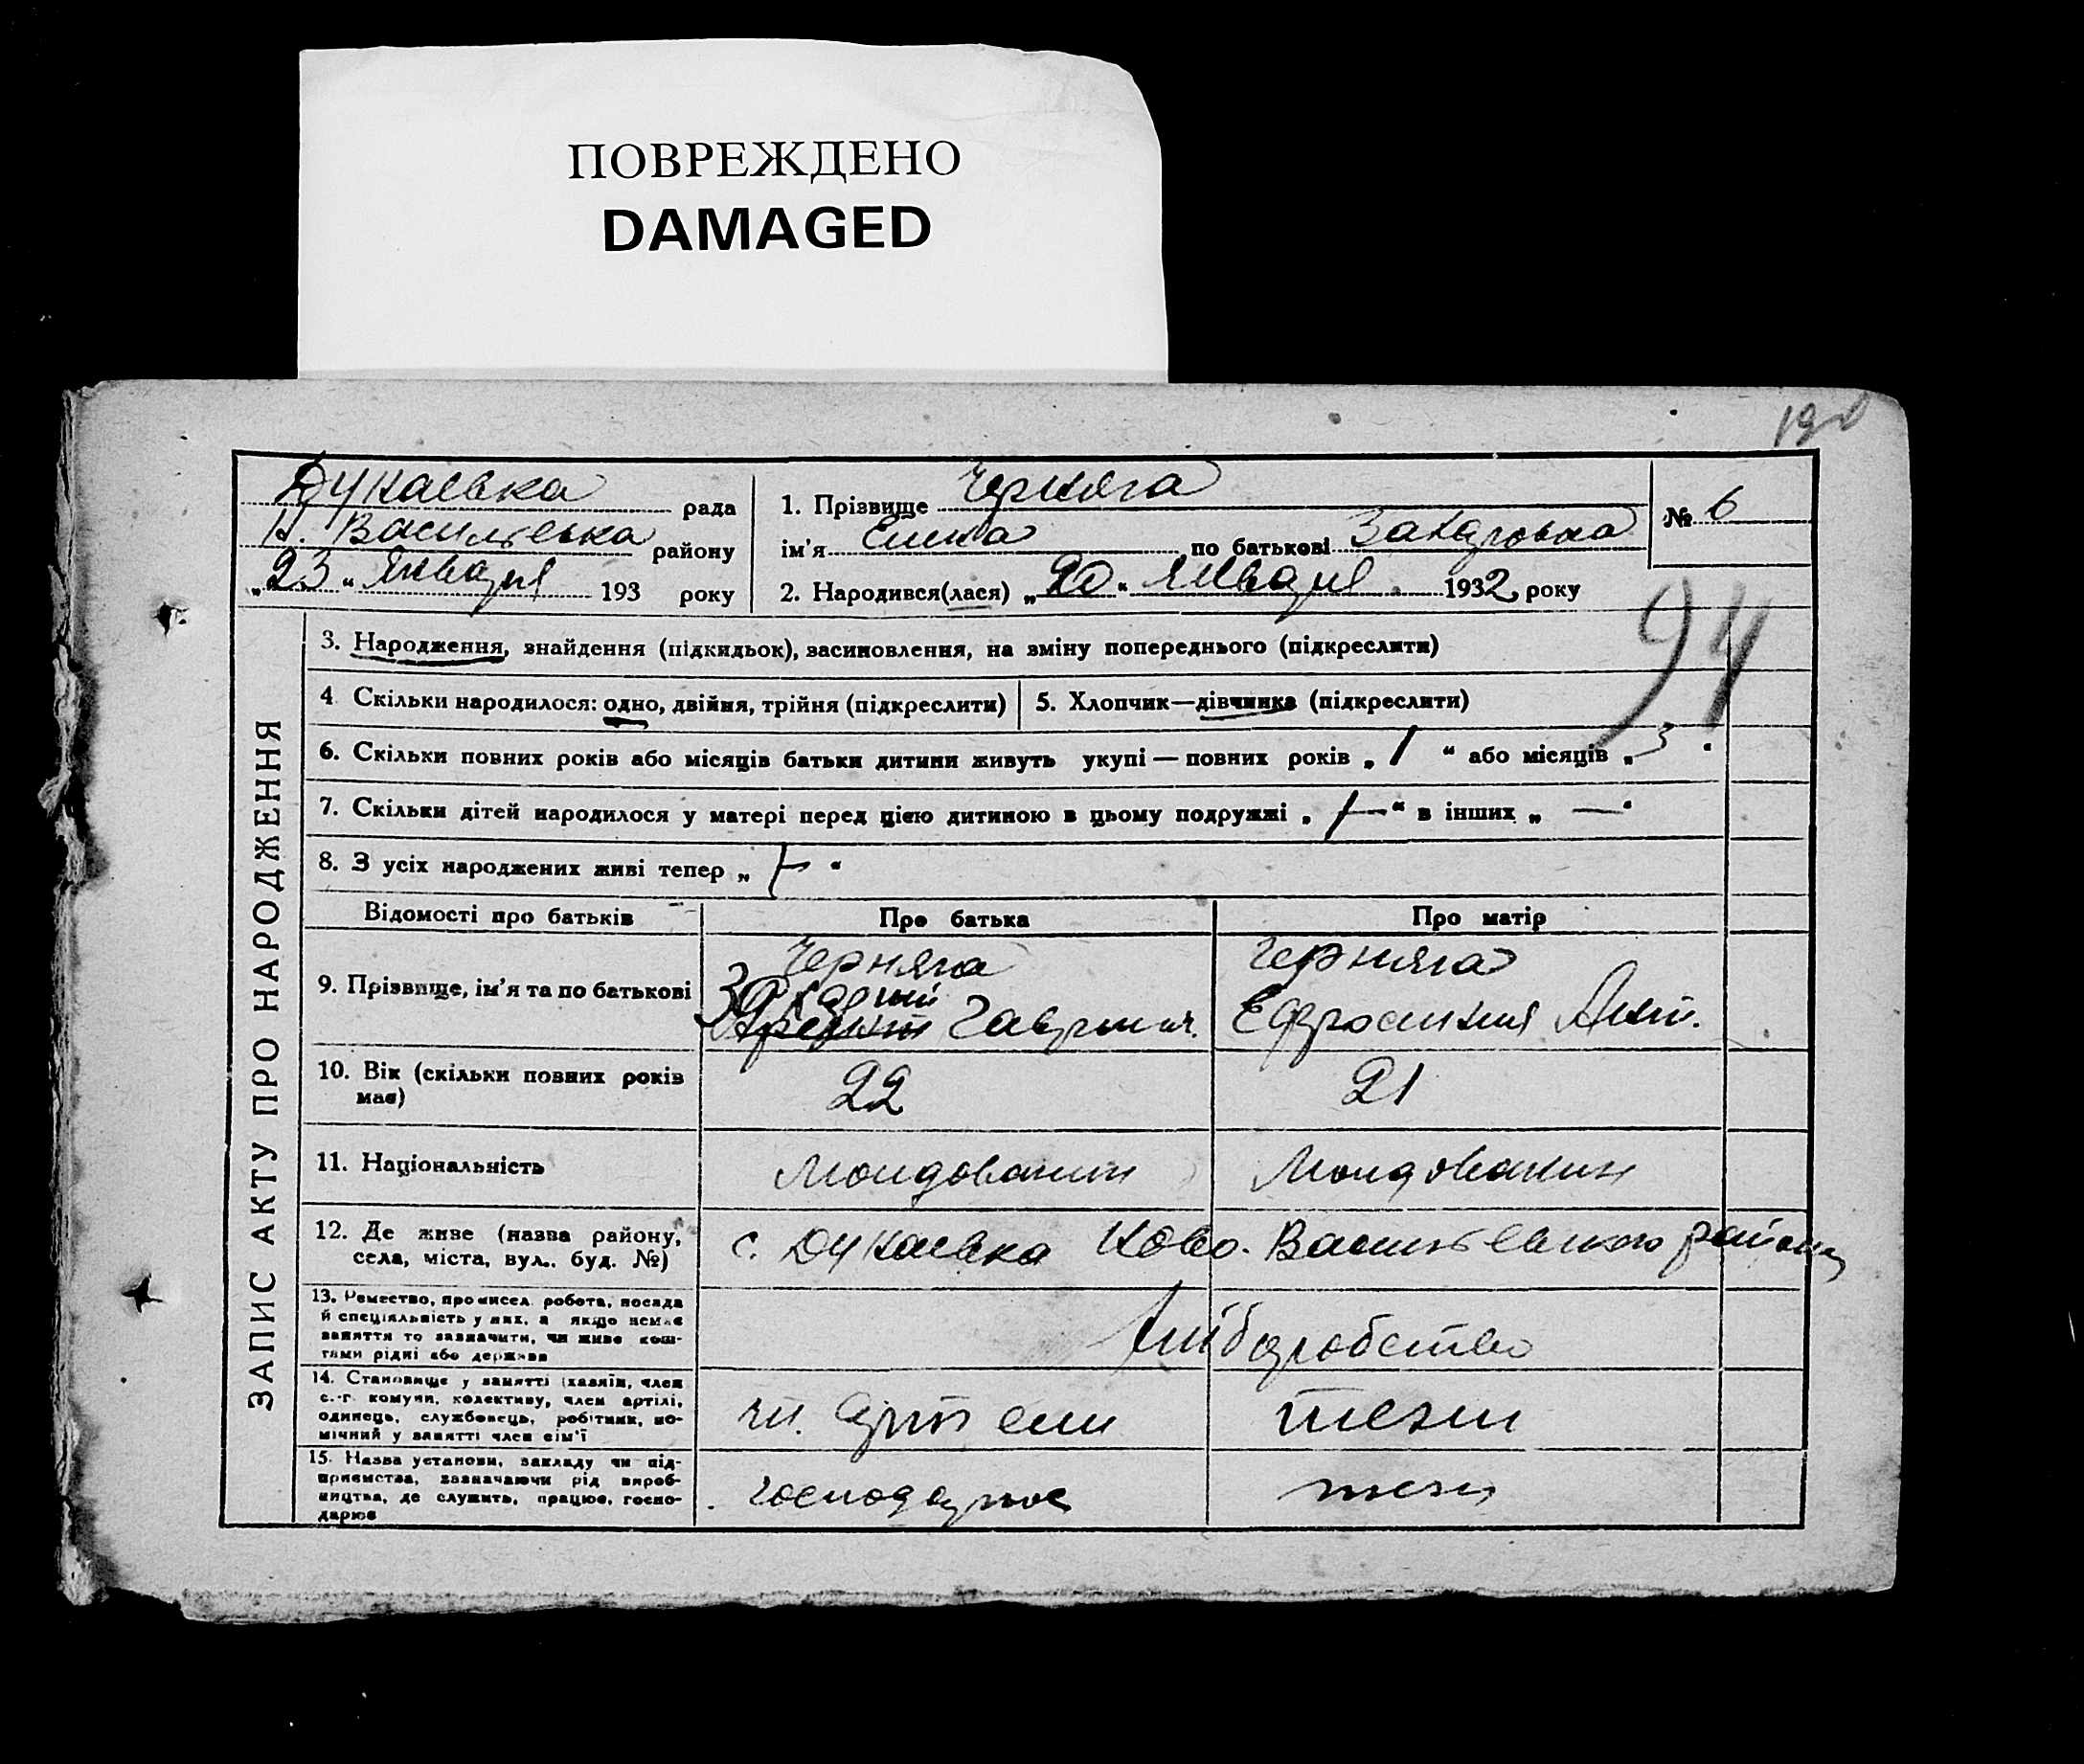 ПОВРЕЖДЕНО
DAMAGED
Дунаевка рада
Н. Васильевка району
„23“ Января 193 року
1. Прізвище Черняга
ім'я Елена по батькові Захаровна
2. Народився(лася) „20“ Января 1932 року
№ 6
94
ЗАПИС АКТУ ПРО НАРОДЖЕННЯ
3. Народження, знайдення (підкидьок), засиновлення, на зміну попереднього (підкреслити)
4 Скільки народилося: одно, двійня, трійня (підкреслити)
5. Хлопчик—дівчинка (підкреслити)
6. Скільки повних років або місяців батьки дитини живуть укупі — повних років „1“ або місяців „3“
7. Скільки дітей народилося у матері перед цією дитиною в цьому подружжі „ — “ в інших „ — “
8. З усіх народжених живі тепер „ “
Відомості про батьків Про батька Про матір
9. Прізвище, ім'я та по батькові
Черняга
Захарий
Гаврил.
Черняга
Ефросиния Ант.
10. Вік (скільки повних років має)
22
21
11. Національність
Молдованин
Молдованин
12. Де живе (назва району, села, міста, вул., буд. №)
с. Дунаевка Ново-Васильевского району
13. Ремество, промисел, робота, посада й спеціяльність у них, а якщо немає заняття то зазначити, чи живе коштами рідні або держави
хліборобство
14. Становище у занятті (хазяїн, член с.-г. комуни, колективу, член артілі, одинець, службовець, робітник, помічний у занятті член сім'ї
чл. артели
тези
15. Назва установи, закладу чи підприємства, зазначаючи рід виробництва, де служить, працює, господарює
господарює
тези